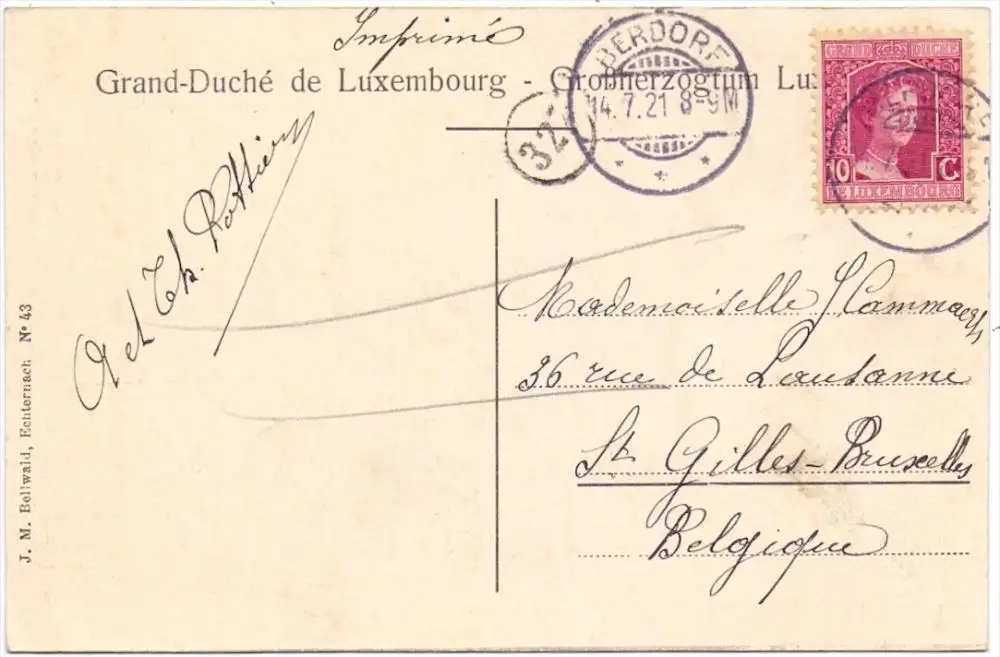 Imprimé
Grand-Duché de Luxembourg - Großherzogtum Lu
BERDORF
14.7.21 8-9M
32
GRAND DUCHE
10 C.
DE LUXEMBOURG
Mademoiselle
36 rue de Lausanne
St Gilles-Bruxelles
Belgique
J. M. Bellwald, Echternach Nº 43